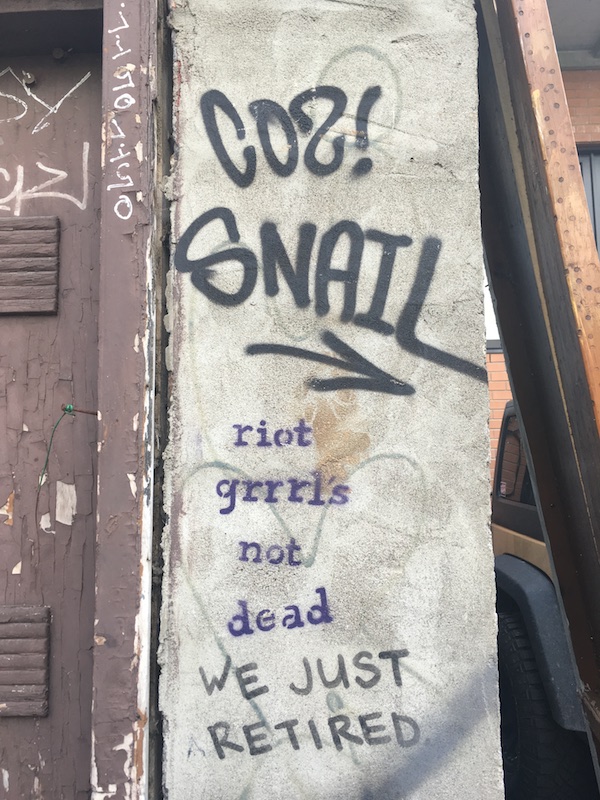 COS!
SNAIL
riot
grrrl's
not
dead
WE JUST
RETIRED